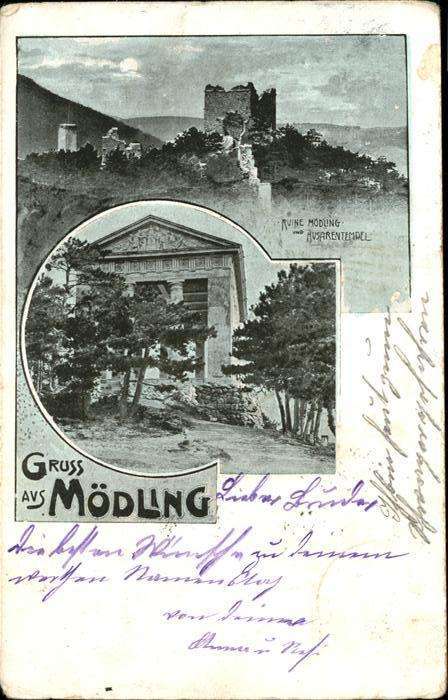 RUINE MÖDLING
UND HUSARENTEMPEL.
GRUSS
AUS MÖDLING
Lieber Bruder
die besten Wünsche zu deinem
werthen Namenstag
von deiner
Anna u